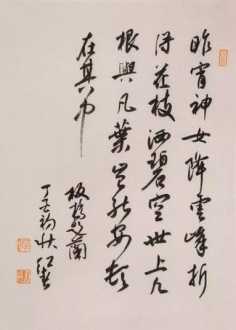 昨宵神女降云峰折
得花枝洒碧空世上凡
根與凡葉豈能安頓
在其中
板橋題蘭
丁亥初秋